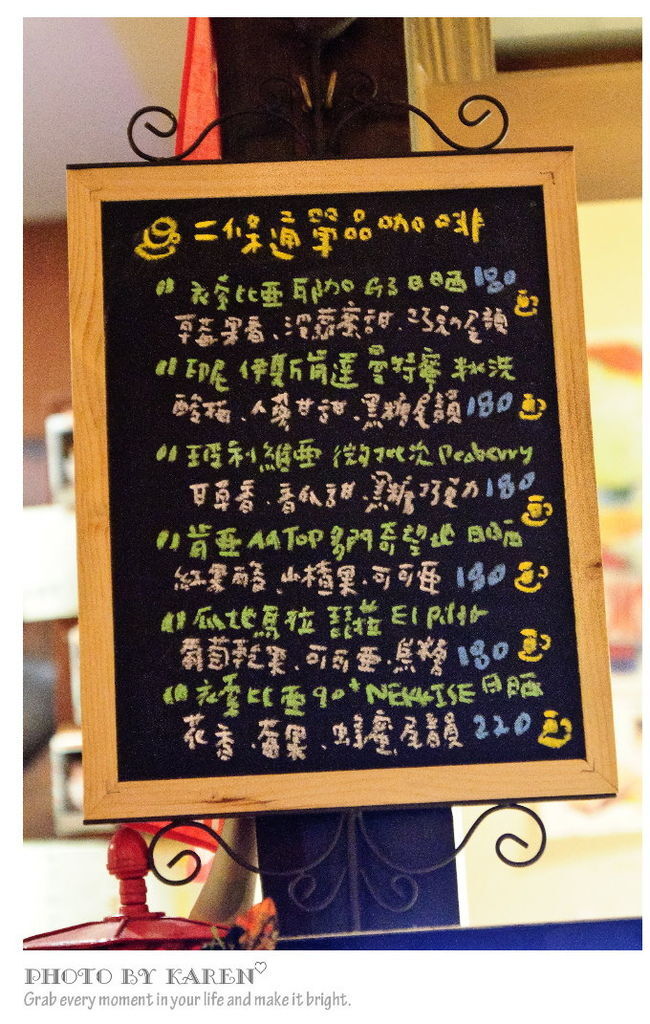 二條通單品咖啡
衣索比亞 耶加 G3 日晒 180
草莓果香、波蘿蜜甜、巧克力尾韻
印尼 伊斯肯達 曼特寧 水洗
酸梅、人蔘甘甜、黑糖尾韻 180
玻利維亞 微批次 Peaberry
甘草香、香瓜甜、黑糖巧克力 180
肯亞 AA TOP 多門奇 莊園 日晒
紅果酸、山楂果、可可亞 180
瓜地馬拉 琵菈 El Pilar
葡萄乾果、可可亞、焦糖 180
衣索比亞 90+ NEKISSE 日晒
花香、莓果、蜂蜜尾韻 220
PHOTO BY KAREN♡
Grab every moment in your life and make it bright.